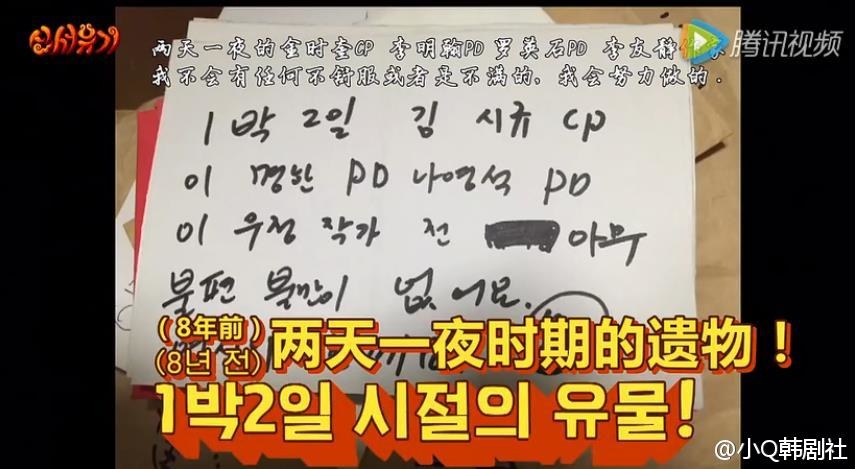 신서유기
腾讯视频
两天一夜的金时奎CP 李明翰PD 罗英石PD 李友静
我不会有任何不舒服或者是不满的, 我会努力做的 .
1박 2일 김 시규 CP
이 명한 PD 나영석 PD
이 우정 작가 전 아무
불편 불만이 없어요.
(8年前)
(8년 전)
两天一夜时期的遗物！
1박2일 시절의 유물!
@小Q韩剧社